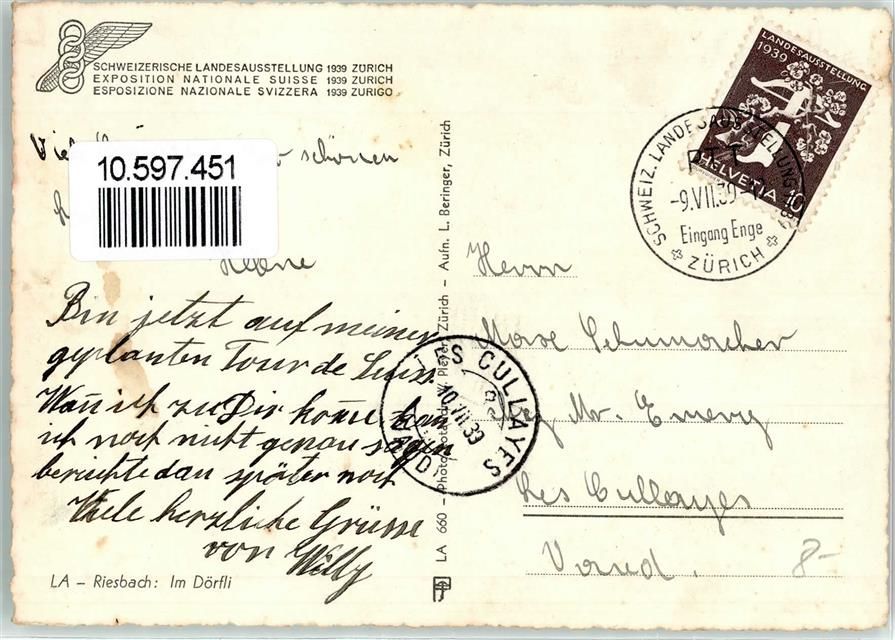 SCHWEIZERISCHE LANDESAUSSTELLUNG 1939 ZÜRICH
EXPOSITION NATIONALE SUISSE 1939 ZÜRICH
ESPOSIZIONE NAZIONALE SVIZZERA 1939 ZURIGO
schönen
10.597.451
Bin jetzt auf meiner
geplanten Tour de Suiss.
Wañ ich zu Dir kom̄e kan
ich noch nicht genau sagen
berichte dan später noch
Viele herzliche Grüsse
von Willy
LA – Riesbach: Im Dörfli
LA 660 – Photo Rotasdr. W. Pleyer, Zürich – Aufn. L. Beringer, Zürich
LES CULLAYES
10.VII.39
LANDESAUSSTELLUNG
1939
HELVETIA 10
SCHWEIZ. LANDESAUSSTELLUNG 1939
PTT
-9.VII.39
Eingang Enge
ZÜRICH
Herrn
Max Schumacher
Mr. Emery
Les Cullayes
Vaud.
8-